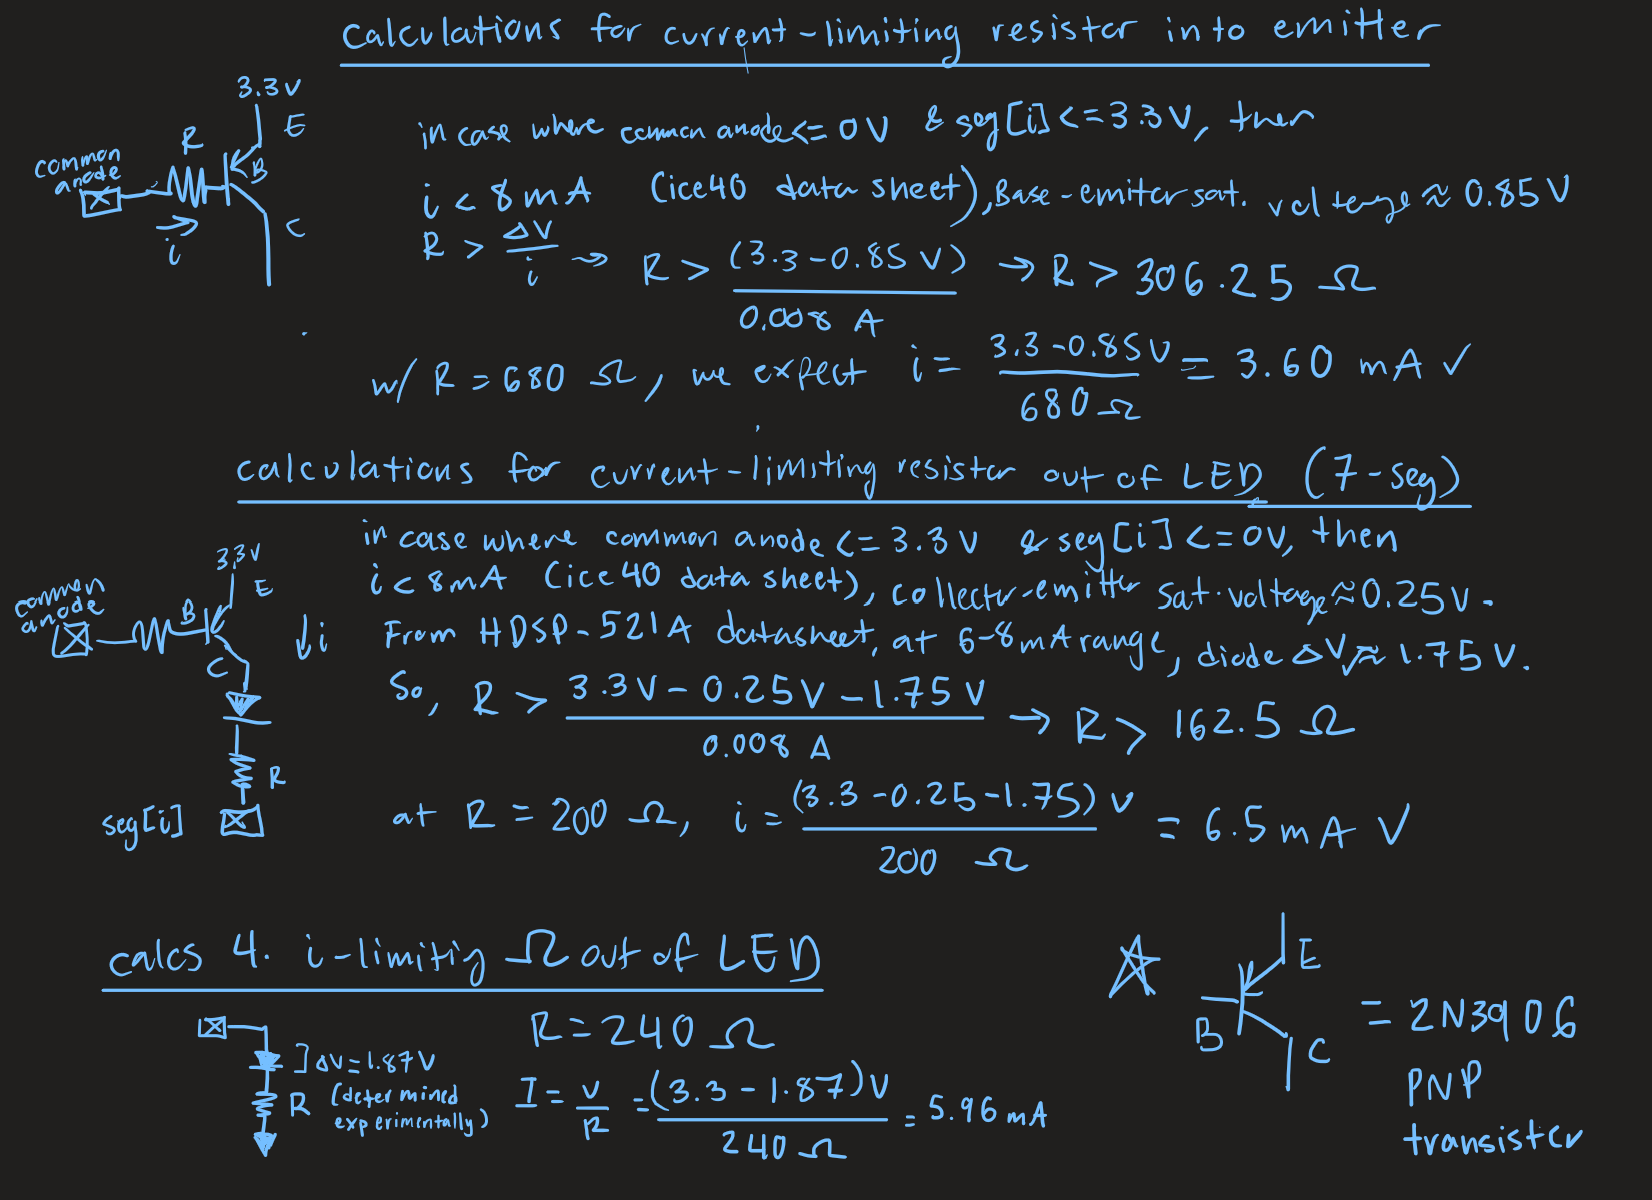 calculations for current-limiting resistor into emitter
3.3V
E
R
B
common
anode
C
i
in case where common anode <= 0V & seg[i] <= 3.3V, then
i < 8mA (ice40 data sheet), Base-emitter sat. voltage ≈ 0.85V
R > ΔV/i → R > (3.3-0.85 V)/0.008 A → R > 306.25 Ω
w/ R = 680 Ω, we expect i = 3.3-0.85V/680Ω = 3.60 mA ✓
calculations for current-limiting resistor out of LED (7-seg)
in case where common anode <= 3.3V & seg[i] <= 0V, then
i < 8mA (ice40 data sheet), collector-emitter sat. voltage ≈ 0.25V.
From HDSP-521A datasheet, at 6-8mA range, diode ΔV ≈ 1.75V.
So, R > 3.3V - 0.25V - 1.75V/0.008 A → R > 162.5 Ω
at R = 200 Ω, i = (3.3-0.25-1.75) V/200 Ω = 6.5mA ✓
3.3V
E
common
anode
B
i
C
R
seg[i]
calcs 4. i-limitig Ω out of LED
ΔV=1.87V
R (determined
experimentally)
R = 240 Ω
I = V/R = (3.3-1.87)V/240 Ω = 5.96 mA
E
B
C
= 2N3906
PNP
transistor